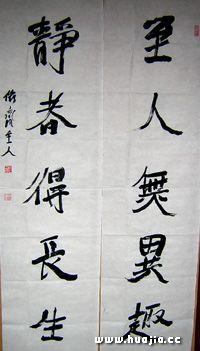 至人無異趣
靜者得長生
www.huajia.cc